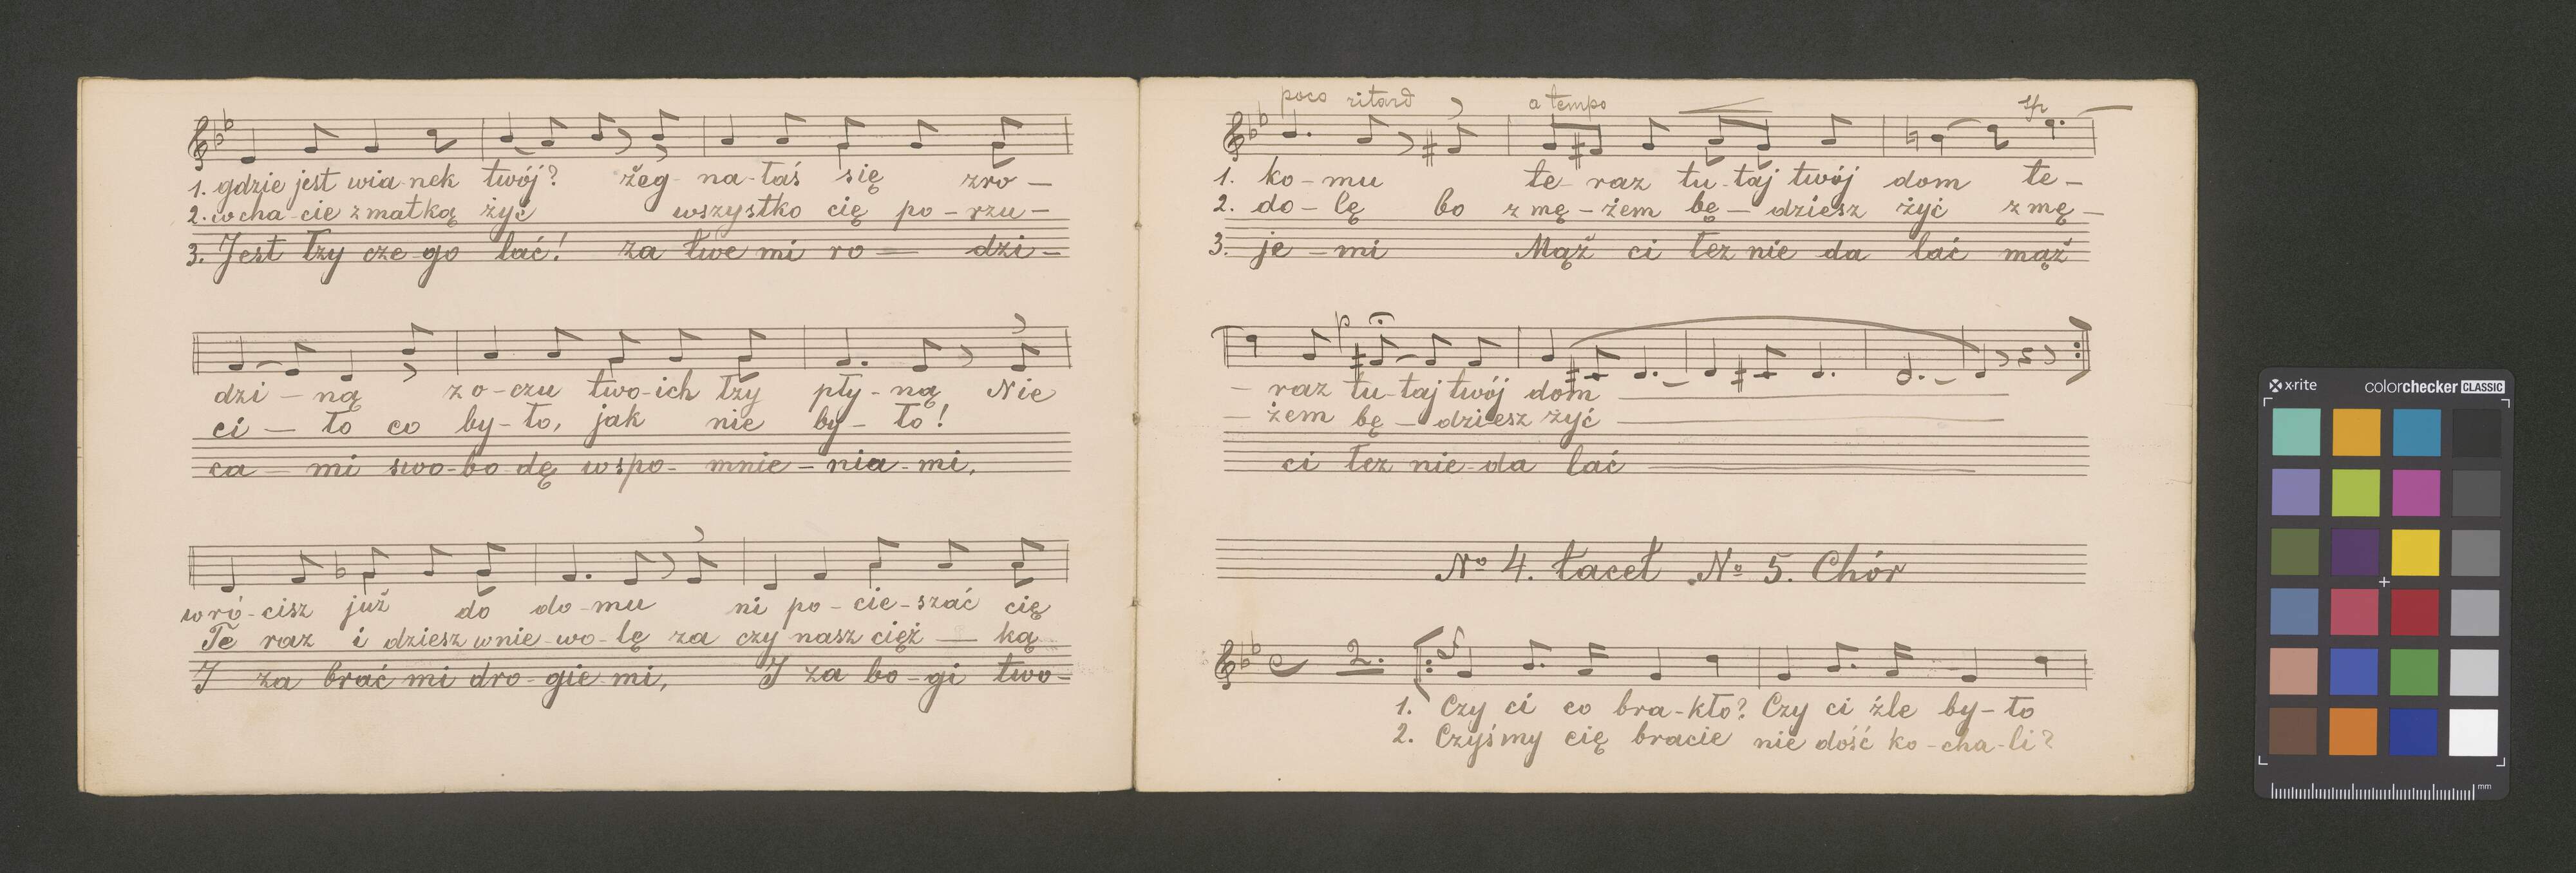 1. gdzie jest wia-nek twój? żeg-na-łaś się zro-
2. w cha-cie z matką żyć wszystko cię po-rzu-
3. Jest łzy cze-go lać! za twe mi ro- dzi-
dzi-ną z o-czu two-ich łzy pły-ną Nie
ci-ło co by-ło, jak nie by-ło!
ca-mi swo-bo-dę wspo-mnie-nia-mi.
wró-cisz już do do-mu ni po-cie-szać cię
Te raz i dziesz w nie-wo-lę za czy nasz cięż-ką
I za brać mi dro-gie mi, I za bo-gi two-
poco ritard a tempo
1. ko-mu te-raz tu-taj twój dom te-
2. do-lę bo z mę-żem bę-dziesz żyć z mę-
3. je-mi Mąż ci łez nie da lać mąż
p
- raz tu-taj twój dom
- żem bę-dziesz żyć
ci łez nie-da lać
No 4. tacet No 5. Chór
2.
1. Czy ci co bra-kło? Czy ci źle by-ło
2. Czyśmy cię bracie nie dość ko-cha-li?
x-rite colorchecker CLASSIC
mm